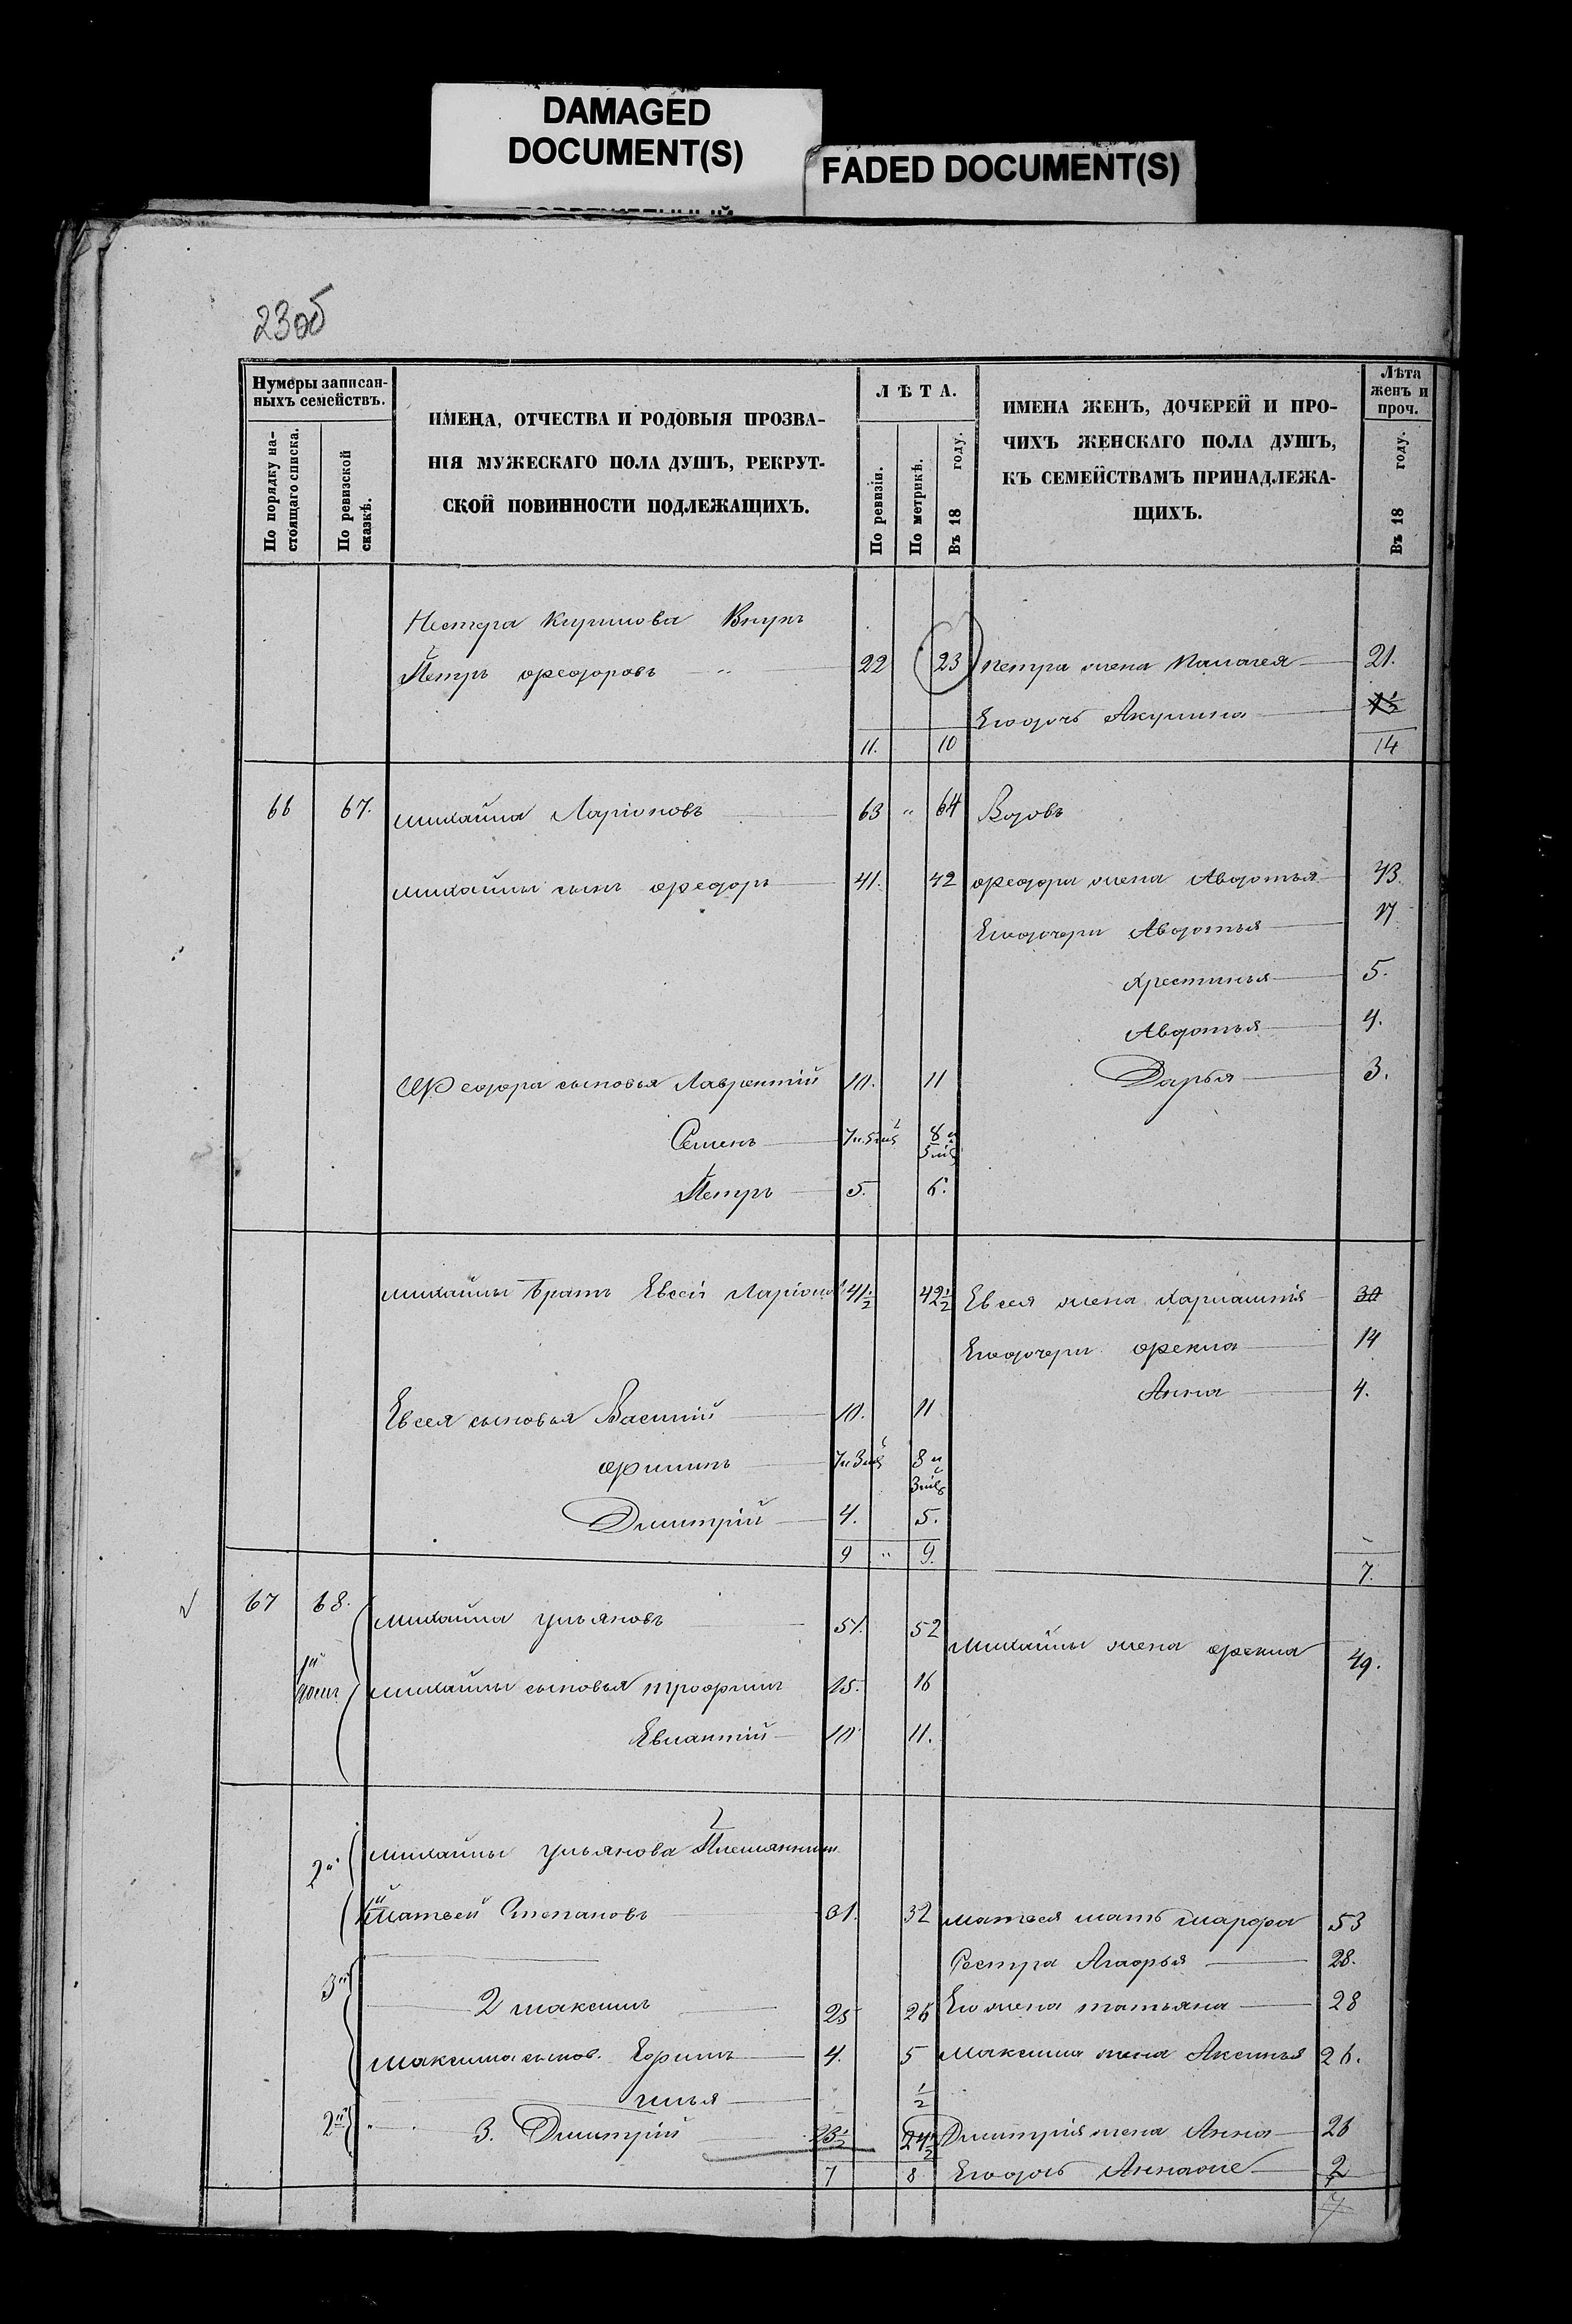 DAMAGED
DOCUMENT(S)
FADED DOCUMENT(S)
23об
Нумеры записан-
ныхъ семействъ.
По порядку на-
стоящаго списка.
По ревизской
сказкѣ.
ИМЕНА, ОТЧЕСТВА И РОДОВЫЯ ПРОЗВА-
НІЯ МУЖЕСКАГО ПОЛА ДУШЪ, РЕКРУТ-
СКОЙ ПОВИННОСТИ ПОДЛЕЖАЩИХЪ.
ЛѢТА.
По ревизіи.
По метрикѣ.
Въ 18 году.
ИМЕНА ЖЕНЪ, ДОЧЕРЕЙ И ПРО-
ЧИХЪ ЖЕНСКАГО ПОЛА ДУШЪ,
КЪ СЕМЕЙСТВАМЪ ПРИНАДЛЕЖА-
ЩИХЪ.
Лѣта
женъ и
проч.
Въ 18 году.
Нестера Кирилова Внукъ
Петръ Ѳеодоровъ 22 23 Петра жена Палагея 21.
Его дочь Акулина 1½
11. 10 14
66 67. Михайла Ларіоновъ 63 " 64 Вдовъ
Михайлы сынъ Ѳедоръ 41. 42 Ѳедора жена Авдотья 43
Его дочери Авдотья 17
Крестинья 5.
Авдотья 4.
Ѳедора сыновья Лаврентій 10. 11 Дарья 3.
Семенъ 7 и 5 мѣ 8 и 5 мѣ
Петръ 5. 6.
Михайлы братъ Евсей Ларіоно 41½ 42½ Евсея жена Харлампія 30
Его дочери Ѳекла 14
Анна 4.
Евсея сыновья Василій 10. 11
Филипъ 7 и 3 мѣ 8 и 3 мѣ
Дмитрій 4. 5.
9 " 9. 7.
67 68. Михайла Ульяновъ 51. 52 Михайлы жена Ѳекла 49.
Михайлы сыновья Трофимъ 15. 16
Евлантій 10 11.
2й Михайлы Ульянова Племянники
Матвей Степановъ 31. 32 Матвея мать Марфа 53
Сестра Агафья 28.
3й 2 Максимъ 25 26 Его жена Татьяна 28
Максима сынов. Ефимъ 4. 5 Максима жена Аксинья 26.
Илья ½
2й 3. Дмитрій 23½ 24½ Дмитрія жена Анна 26
7 8 Его дочь Анна же 2
7